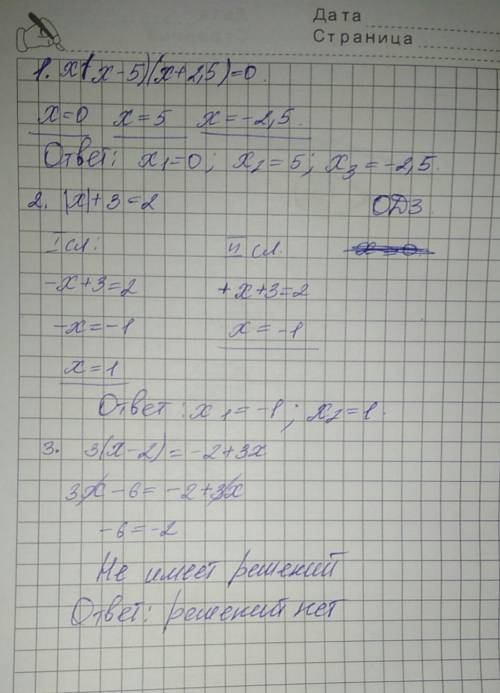 Дата
Страница
1. x(x-5)(x+2,5)=0.
x=0 x=5 x=-2,5.
Ответ: x₁=0; x₂=5; x₃=-2,5.
2. |x|+3=2 ОДЗ
I сл: II сл.
-x+3=2 +x+3=2
-x=-1 x=-1
x=1
Ответ: x₁=-1; x₂=1.
3. 3(x-2)=-2+3x
3x-6=-2+3x
-6=-2
Не имеет решений
Ответ: решений нет